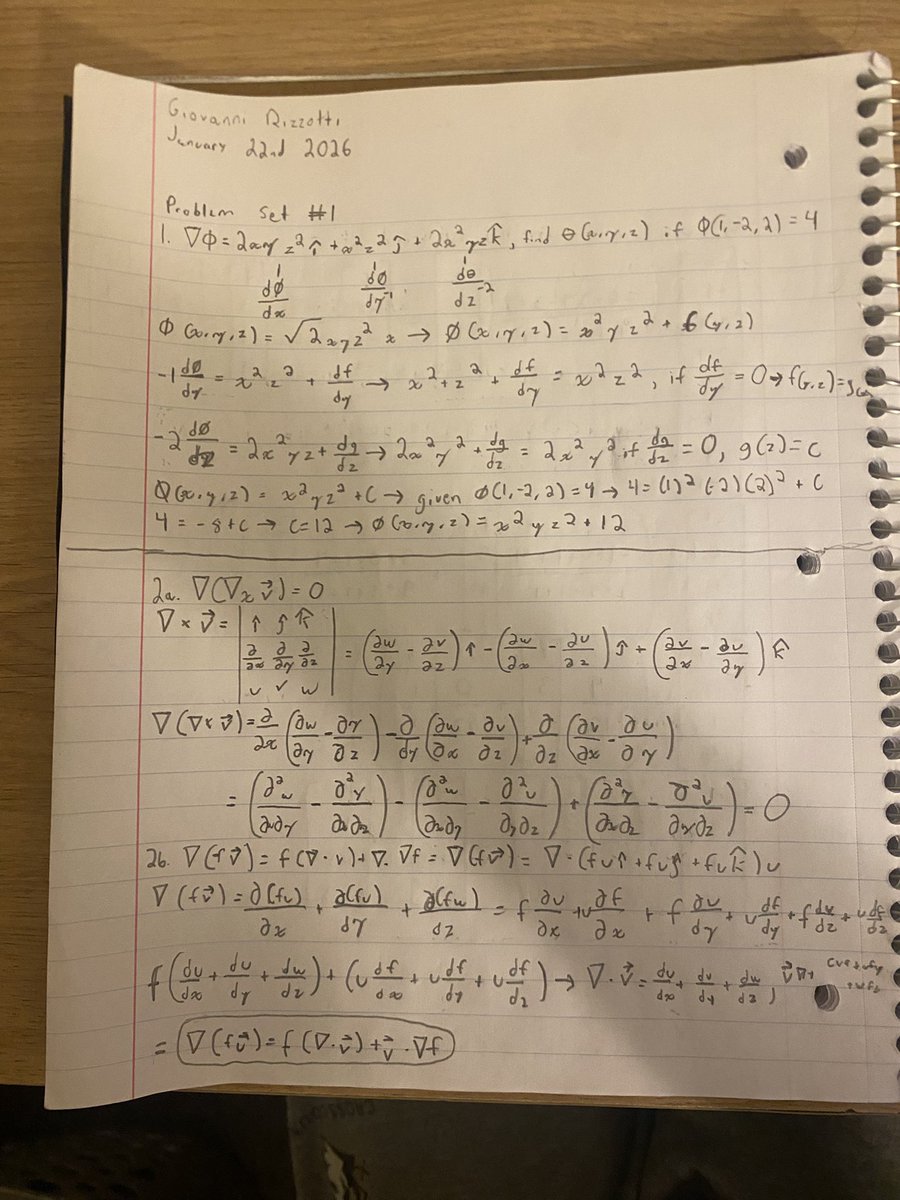 Giovanni Rizzotti
January 22nd 2026
Problem Set #1
1. ∇Φ = 2xyz²î + x²z²ĵ + 2x²yzk̂, find Θ(x,y,z) if Φ(1,-2,2) = 4
dφ/dx dφ/dy⁻¹ dθ/dz⁻²
Φ(x,y,z) = √2xyz² x → φ(x,y,z) = x²yz² + f(y,z)
-1 dφ/dy = x²z² + df/dy → x²+z² + df/dy = x²z², if df/dy = 0 → f(y,z)=
-2 dφ/dz = 2x²yz + dg/dz → 2x²y² + dg/dz = 2x²y² if dg/dz = 0, g(z)=c
Q(x,y,z) = x²yz² + C → given φ(1,-2,2)=4 → 4=(1)²(-2)(2)² + C
4 = -8+C → C=12 → φ(x,y,z) = x²yz²+12
2a. ∇(∇x v⃗) = 0
∇ × v⃗ = | î ĵ k̂ ∂/∂x ∂/∂y ∂/∂z u v w | = (∂w/∂y - ∂v/∂z) î - (∂w/∂x - ∂u/∂z) ĵ + (∂v/∂x - ∂u/∂y) k̂
∇(∇×v⃗) = ∂/∂x (∂w/∂y - ∂v/∂z) - ∂/∂y (∂w/∂x - ∂u/∂z) + ∂/∂z (∂v/∂x - ∂u/∂y)
= (∂²w/∂x∂y - ∂²v/∂x∂z) - (∂²w/∂x∂y - ∂²u/∂y∂z) + (∂²v/∂x∂z - ∂²u/∂y∂z) = 0
2b. ∇(f v⃗) = f(∇·v) + ∇·∇f = ∇(fv⃗) = ∇·(fuî + fvĵ + fwk̂)u
∇(fv⃗) = ∂(fu)/∂x + ∂(fv)/dy + ∂(fw)/dz = f ∂u/∂x + u ∂f/∂x + f ∂v/dy + v df/dy + f dw/dz + w df/dz
f(du/dx + dv/dy + dw/dz) + (u df/dx + v df/dy + w df/dz) → ∇·v⃗ = du/dx + dv/dy + dw/dz, v⃗∇
= ∇(fv⃗) = f(∇·v⃗) + v⃗·∇f